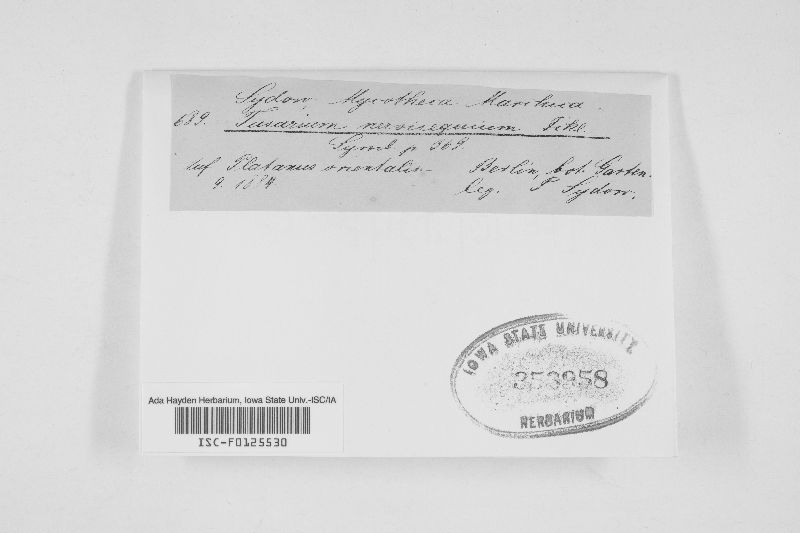 Sydow, Mycotheca Marchica.
689. Fusarium nervisequium Fckl.
Symb. p. 369
Auf Platanus orientalis Berlin, bot. Garten.
9. 1884 leg. P. Sydow.
IOWA STATE UNIVERSITY
353958
HERBARIUM
Ada Hayden Herbarium, Iowa State Univ.-ISC/IA
ISC-F0125530